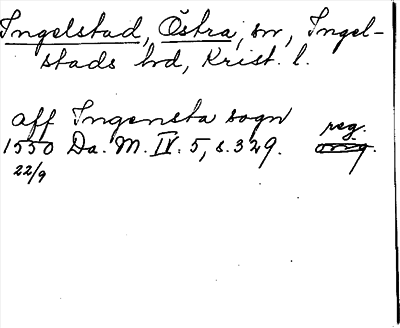 Ingelstad, Östra, sn, Ingel-
stads hd, Krist. l.
aff Ingensta sogn
1550 Da. M. IV. 5, s. 329. reg.
22/9 orig.